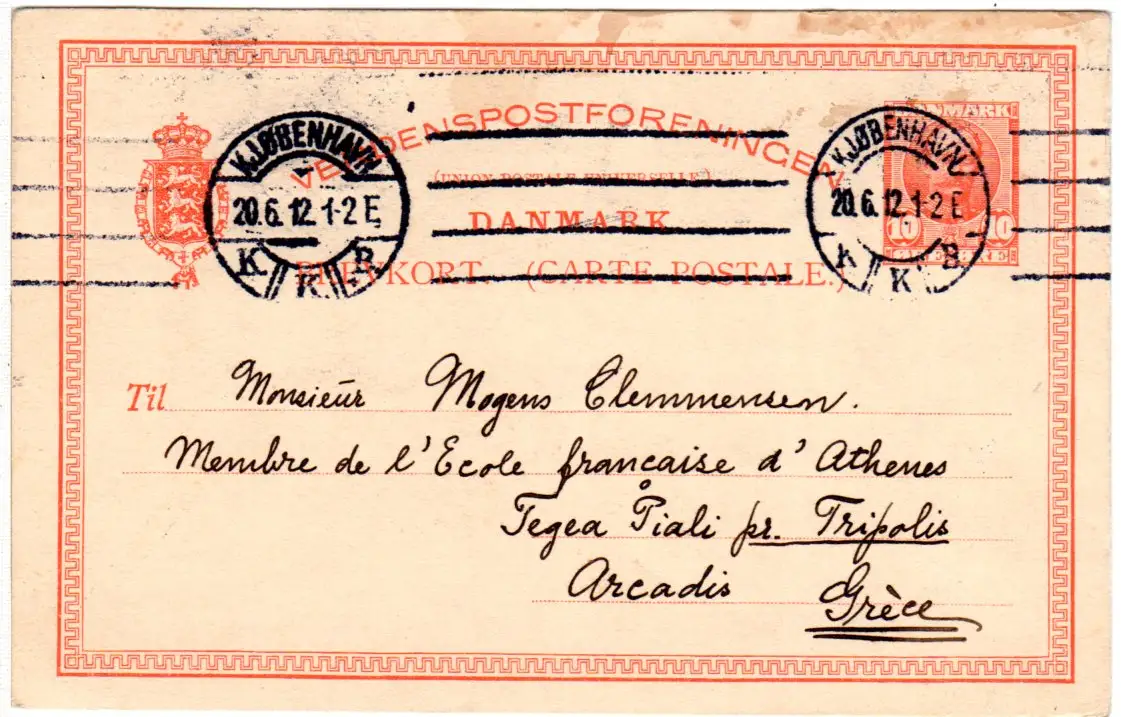 VERDENSPOSTFORENINGEN
(UNION POSTALE UNIVERSELLE)
DANMARK
BREVKORT. (CARTE POSTALE.)
KJØBENHAVN
20.6.12.1-2 E
K K B
KJØBENHAVN
20.6.12.1-2 E
K K B
DANMARK
10 10
Til Monsieur Mogens Clemmensen.
Membre de l'Ecole francaise d'Athenes
Tegea Piali pr. Tripolis
Arcadis Grèce